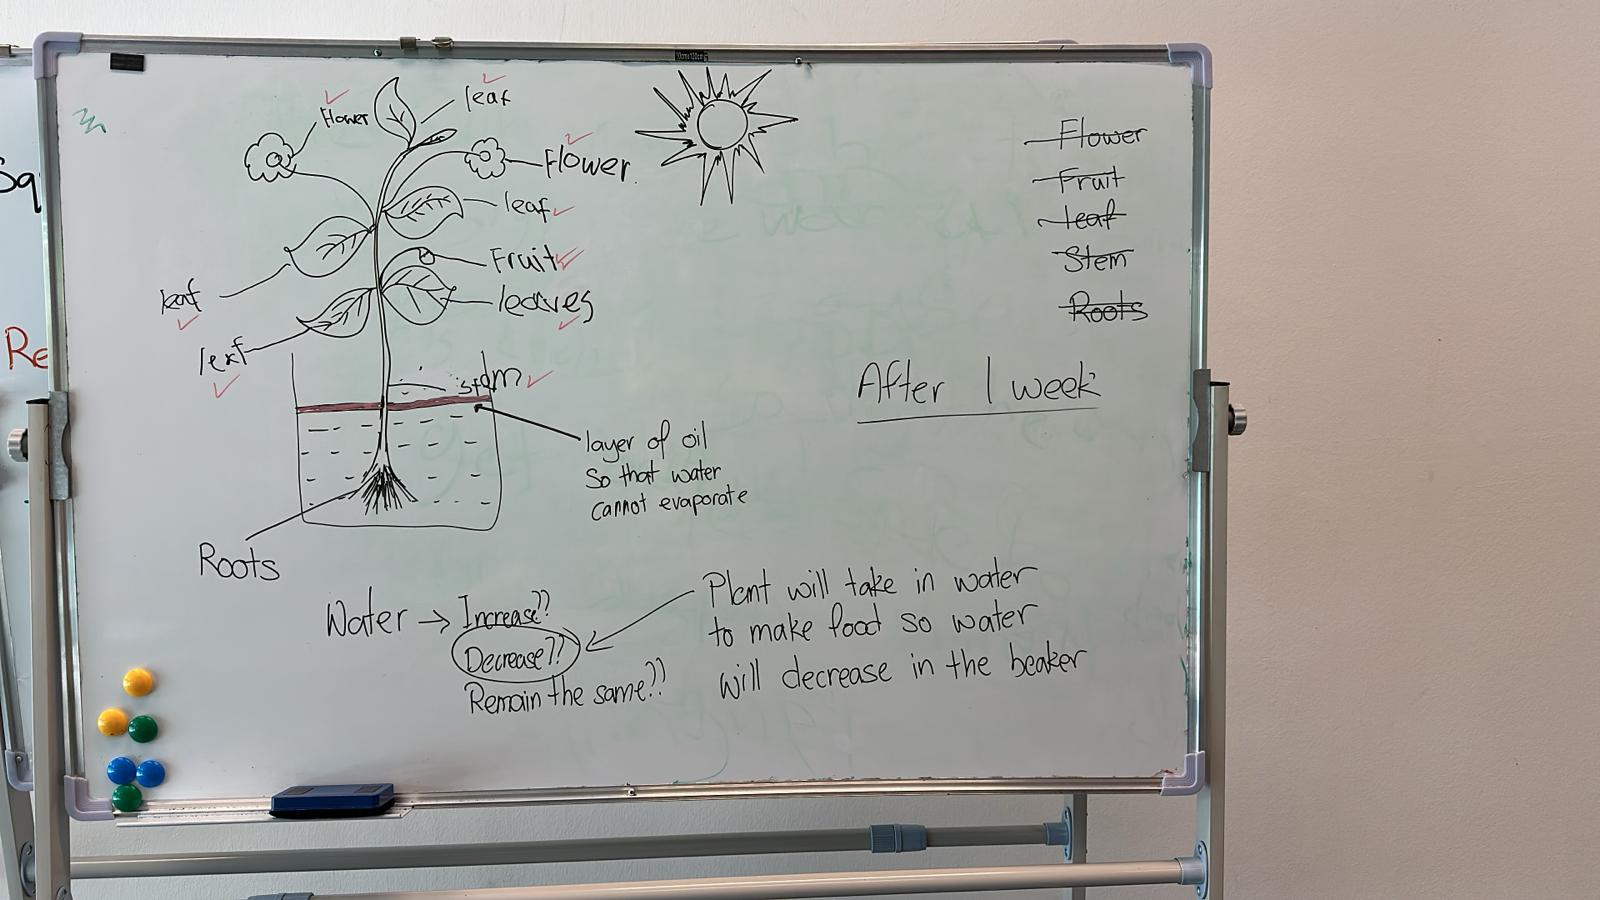 leaf
Flower
Flower
leaf
Fruit
leaf
leaves
leaf
layer of oil
so that water
cannot evaporate
Roots
Flower
Fruit
leaf
Stem
Roots
After 1 week
Water → Increase??
Decrease??
Remain the same??
Plant will take in water
to make food so water
will decrease in the beaker
Re